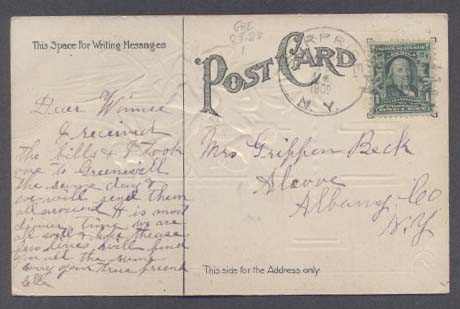 This Space for Writing Messages
POST CARD
N.Y.
1908
Dear Winnie
I received
the bills & I took
one to Greenvill
the same day &
we will send them
all around It is most
dinner time we are
all well & hope thease
few lines will find
you all the same
your true friend
Ella
Mrs Grippen Beck
Alcove
Albany Co
N.Y
This side for the Address only